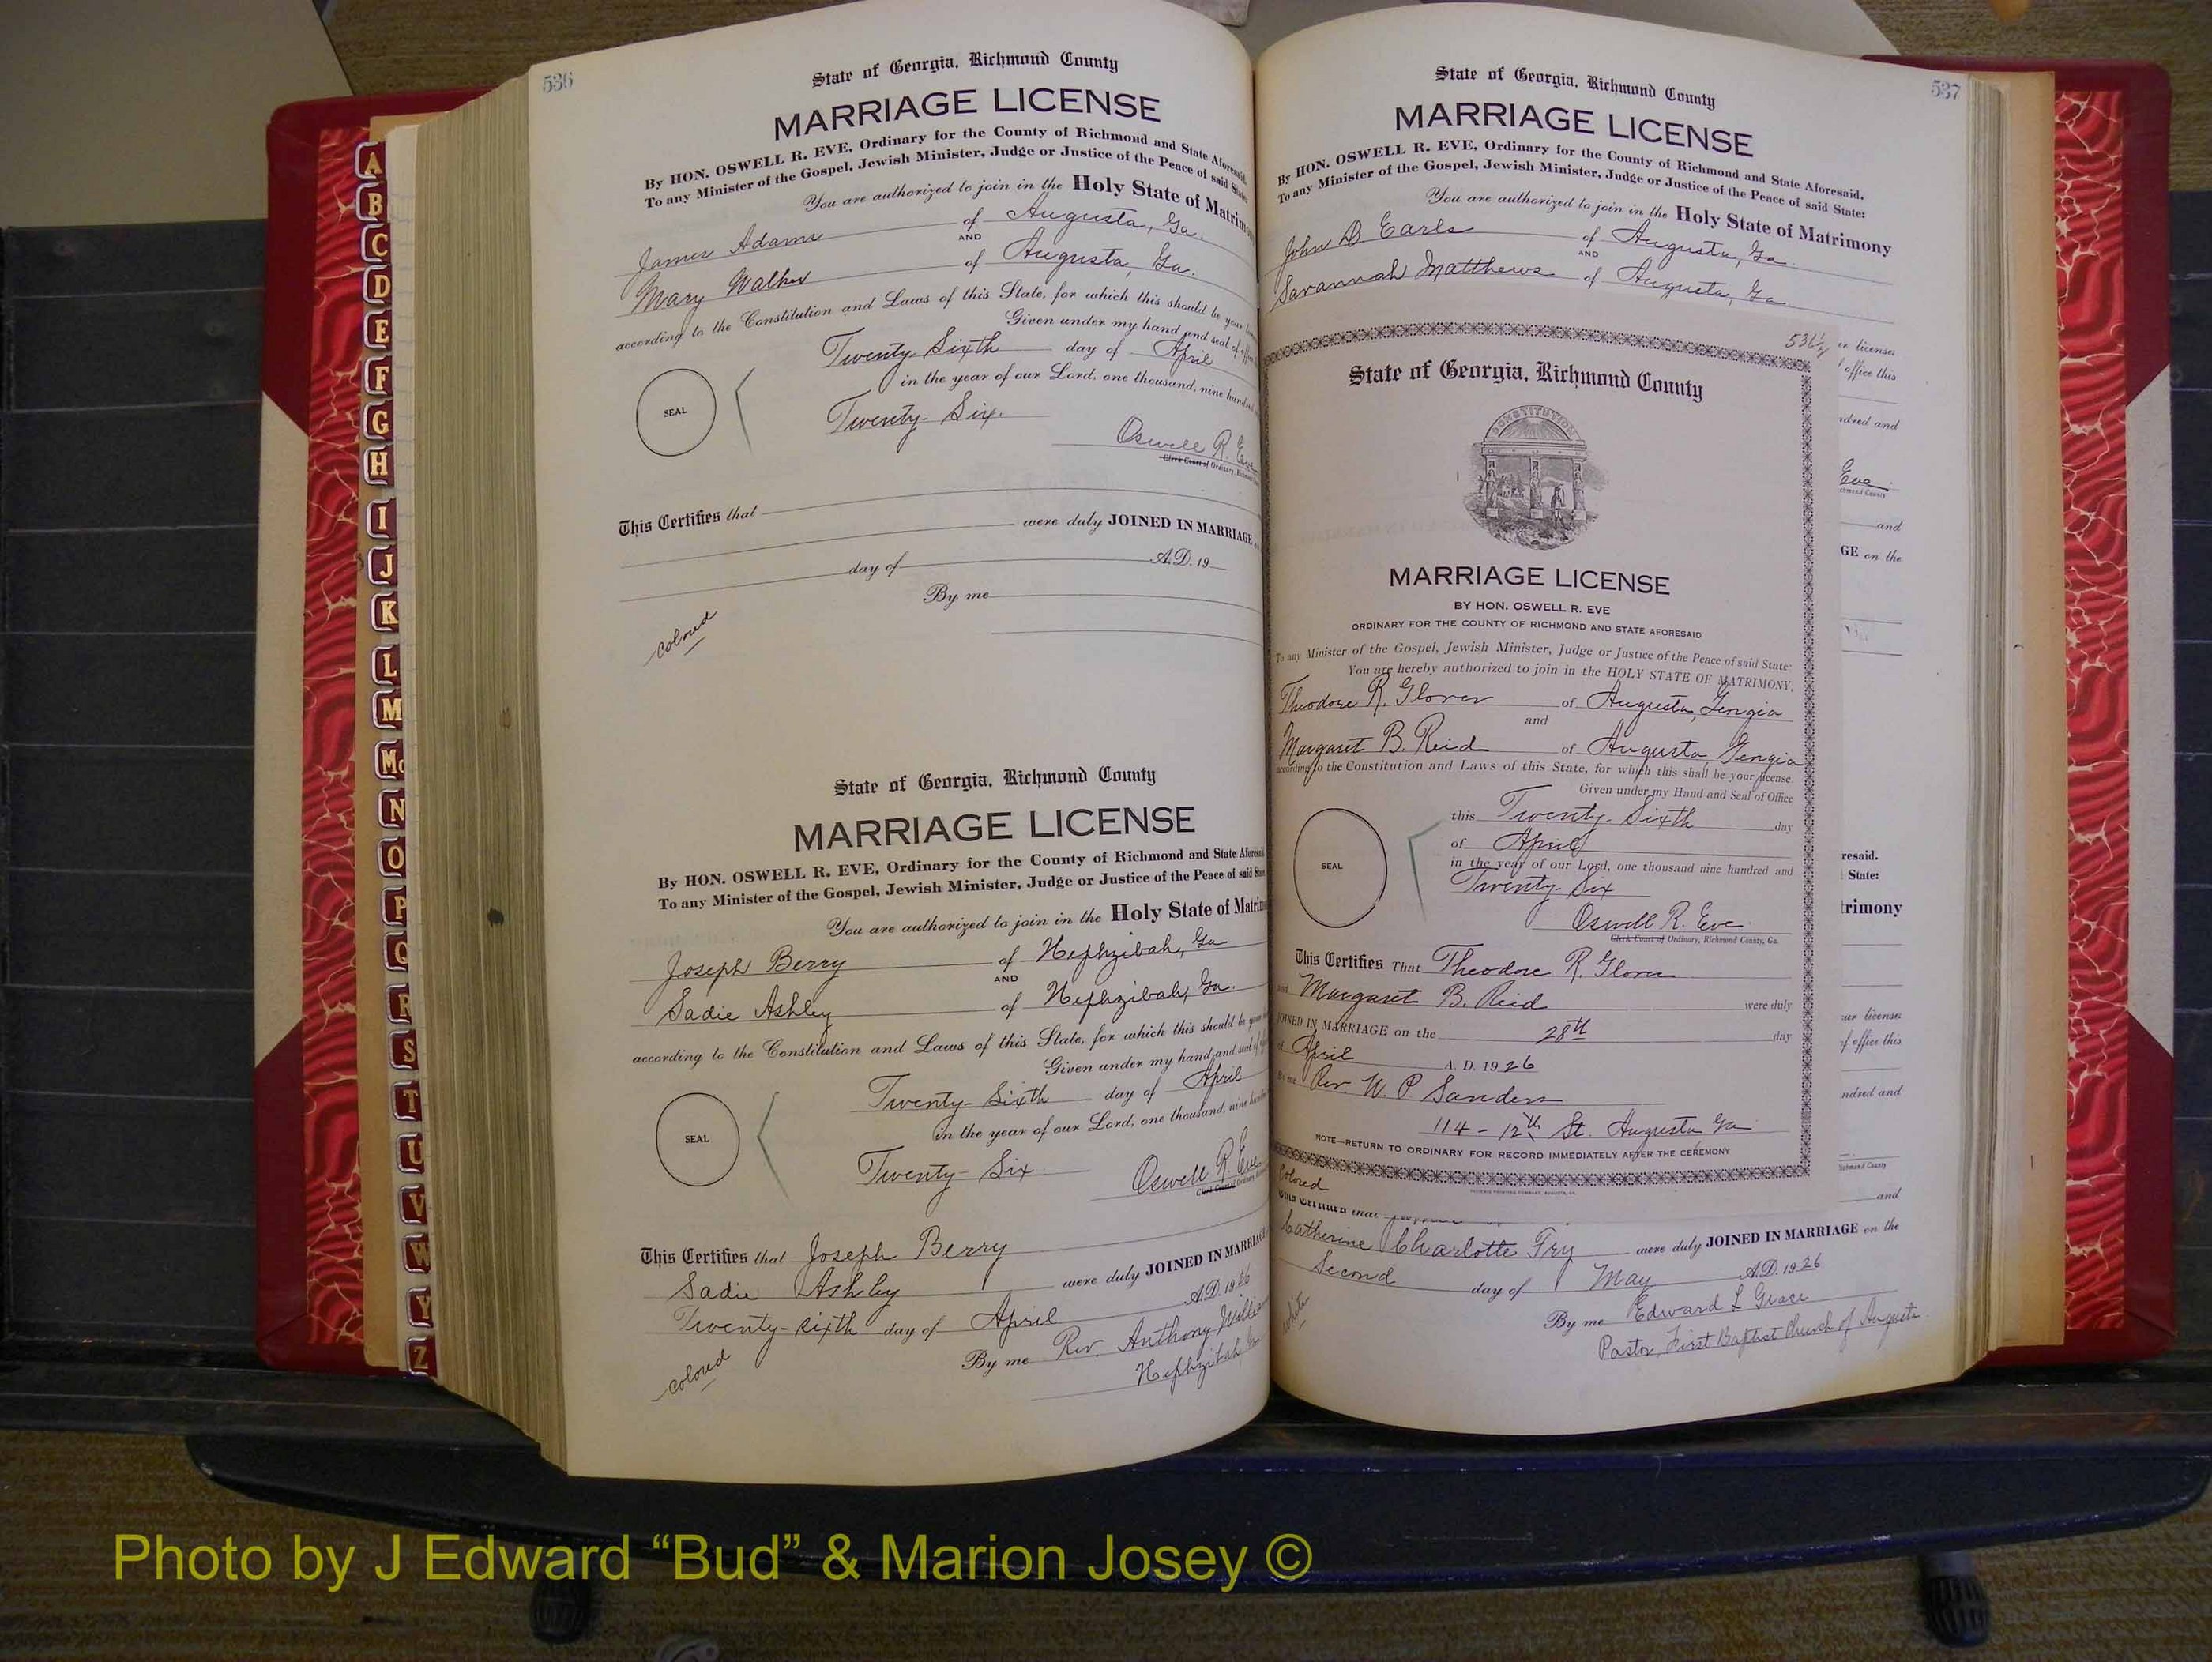 536
State of Georgia, Richmond County
MARRIAGE LICENSE
By HON. OSWELL R. EVE, Ordinary for the County of Richmond and State Aforesaid.
To any Minister of the Gospel, Jewish Minister, Judge or Justice of the Peace of said State:
You are authorized to join in the Holy State of Matrimo
James Adams of Augusta, Ga.
AND
Mary Walker of Augusta, Ga.
according to the Constitution and Laws of this State, for which this should be your
Given under my hand and seal of
Twenty Sixth day of April
in the year of our Lord, one thousand, nine hundred
Twenty-Six.
SEAL
Oswell R. Eve
Clerk Court of Ordinary, Richmond
This Certifies that
were duly JOINED IN MARRIAGE
day of A.D. 19
By me
colored
State of Georgia, Richmond County
MARRIAGE LICENSE
By HON. OSWELL R. EVE, Ordinary for the County of Richmond and State Aforesaid
To any Minister of the Gospel, Jewish Minister, Judge or Justice of the Peace of said State
You are authorized to join in the Holy State of Matrim
Joseph Berry of Hephzibah, Ga
AND
Sadie Ashley of Hephzibah, Ga.
according to the Constitution and Laws of this State, for which this should be your
Given under my hand and seal of
Twenty-Sixth day of April
in the year of our Lord, one thousand, nine hundred
Twenty-Six
SEAL
Oswell R. Eve
Clerk Court of Ordinary,
This Certifies that Joseph Berry
Sadie Ashley were duly JOINED IN MARRIAGE
Twenty-sixth day of April A.D. 1926
By me Rev. Anthony Willis
Hephzibah, Ga
colored
537
State of Georgia, Richmond County
MARRIAGE LICENSE
By HON. OSWELL R. EVE, Ordinary for the County of Richmond and State Aforesaid.
To any Minister of the Gospel, Jewish Minister, Judge or Justice of the Peace of said State:
You are authorized to join in the Holy State of Matrimony
John B Earls of Augusta, Ga.
AND
Savannah Matthews of Augusta, Ga
536½
State of Georgia, Richmond County
CONSTITUTION
MARRIAGE LICENSE
BY HON. OSWELL R. EVE
ORDINARY FOR THE COUNTY OF RICHMOND AND STATE AFORESAID
To any Minister of the Gospel, Jewish Minister, Judge or Justice of the Peace of said State-
You are hereby authorized to join in the HOLY STATE OF MATRIMONY,
Theodore R. Glover of Augusta, Georgia
and
Margaret B. Reid of Augusta Georgia
according to the Constitution and Laws of this State, for which this shall be your license.
Given under my Hand and Seal of Office
this Twenty-Sixth day
of April
in the year of our Lord, one thousand nine hundred and
Twenty-Six
SEAL
Oswell R. Eve
Clerk Court of Ordinary, Richmond County, Ga.
This Certifies That Theodore R. Glover
and Margaret B. Reid were duly
JOINED IN MARRIAGE on the 28th day
of April A. D. 1926
By me Rev. W. P Sanders
114 - 12th St. Augusta Ga
NOTE—RETURN TO ORDINARY FOR RECORD IMMEDIATELY AFTER THE CEREMONY
Colored
r license
office this
ndred and
Eve
chmond County
and
GE on the
resaid.
State:
trimony
ur license
f office this
ndred and
ichmond County
and
Catherine Charlotte Fry were duly JOINED IN MARRIAGE on the
Second day of May A.D. 1926
By me Edward L Grace
Pastor, First Baptist Church of Augusta
white
A
B
C
D
E
F
G
H
I
J
K
L
M
Mc
N
O
P
Q
R
S
T
U
V
W
Y
Z
Photo by J Edward “Bud” & Marion Josey ©